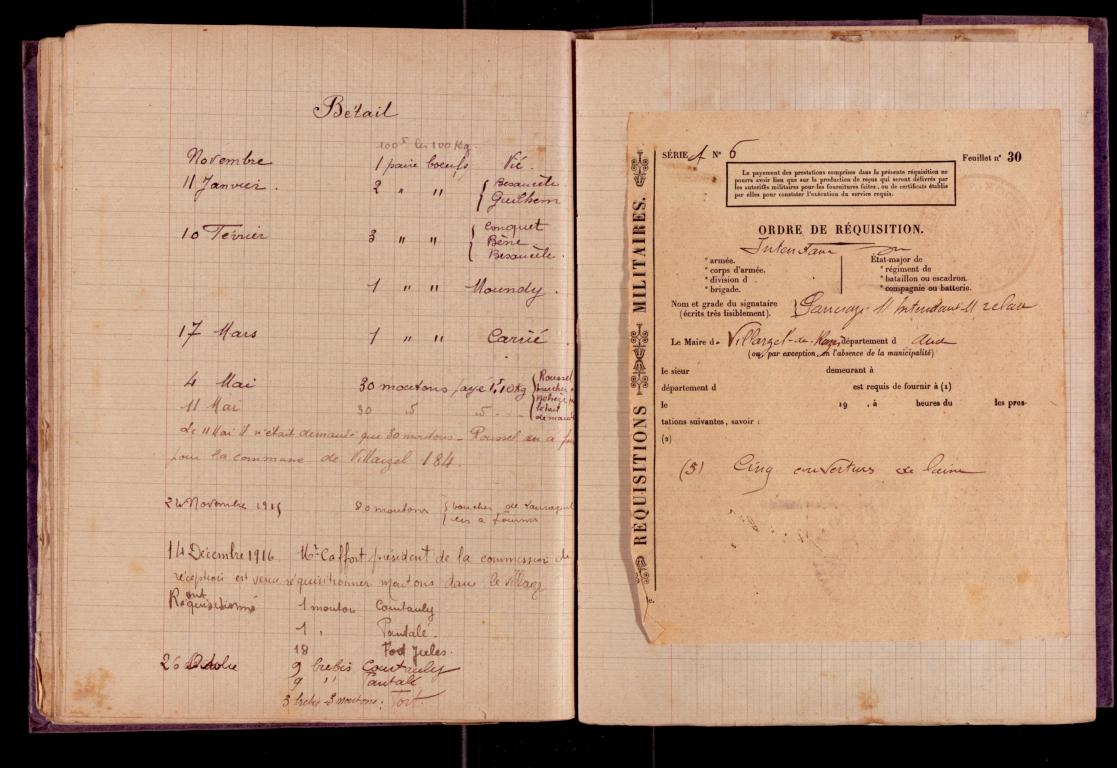 Bétail
100f les 100 Kg.
Novembre 1 paire boeufs Vié.
11 Janvier. 2 " " { Besaucèle
{ Guilhem
10 Février 3 " " { Conquet
{ Bène
{ Besaucèle.
1 " " Moundy.
17 Mars 1 " " Carrié
4 Mai 30 moutons payé 1f,10 Kg { Roussel
boucher
11 Mai 30
Le 11 Mai il n'était demandé que 30 moutons - Roussel en a
pour la commune de Villarzel 184.
24 Novembre 1915 30 moutons { boucher de
{ les a fournis
14 Décembre 1916. Mr Caffort, président de la commission de
réception est venu réquisitionner moutons dans le village
ont
Réquisitionné 1 mouton Courtauly
1 " Pantalé.
18 Fort Jules.
26 9 brebis Courtauly
9 " Pantalé
3 brebis 3 moutons: Fort.
RÉQUISITIONS MILITAIRES.
SÉRIE A N° 6
Feuillet n° 30
Le payement des prestations comprises dans la présente réquisition ne
pourra avoir lieu que sur la production de reçus qui seront délivrés par
les autorités militaires pour les fournitures faites, ou de certificats établis
par elles pour constater l'exécution du service requis.
ORDRE DE RÉQUISITION.
° armée. État-major de
° corps d'armée. ° régiment de
° division d ° bataillon ou escadron.
° brigade. ° compagnie ou batterie.
Nom et grade du signataire
(écrits très lisiblement).
Le Maire de Villarzel-du-Razès, département d Aude
(ou, par exception, en l'absence de la municipalité)
le sieur demeurant à
département d est requis de fournir à (1)
le 19 , à heures du les pres-
tations suivantes, savoir :
(2)
(5) Cinq couvertures de laine